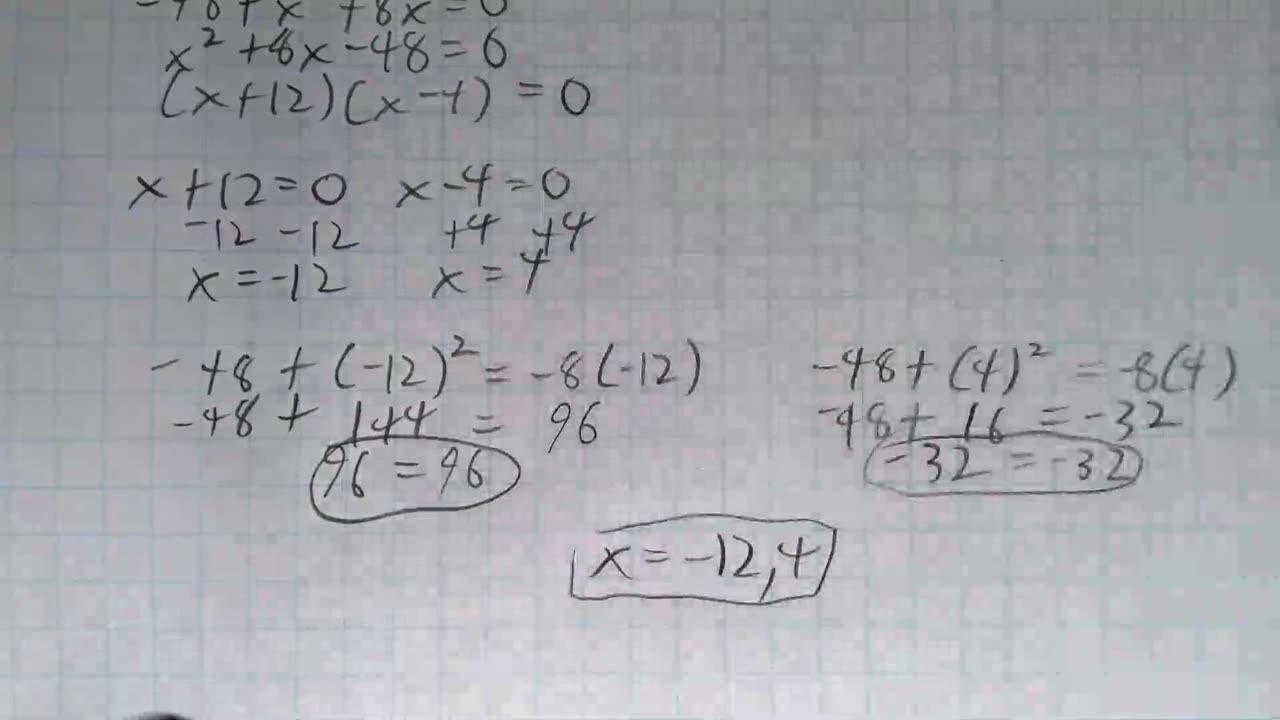 -48+x +8x=0
x²+8x-48=0
(x+12)(x-4)=0
x+12=0 x-4=0
-12 -12 +4 +4
x=-12 x=4
-48+(-12)²=-8(-12) -48+(4)²=-8(4)
-48+144=96 -48+16=-32
96=96 -32=-32
x=-12,4